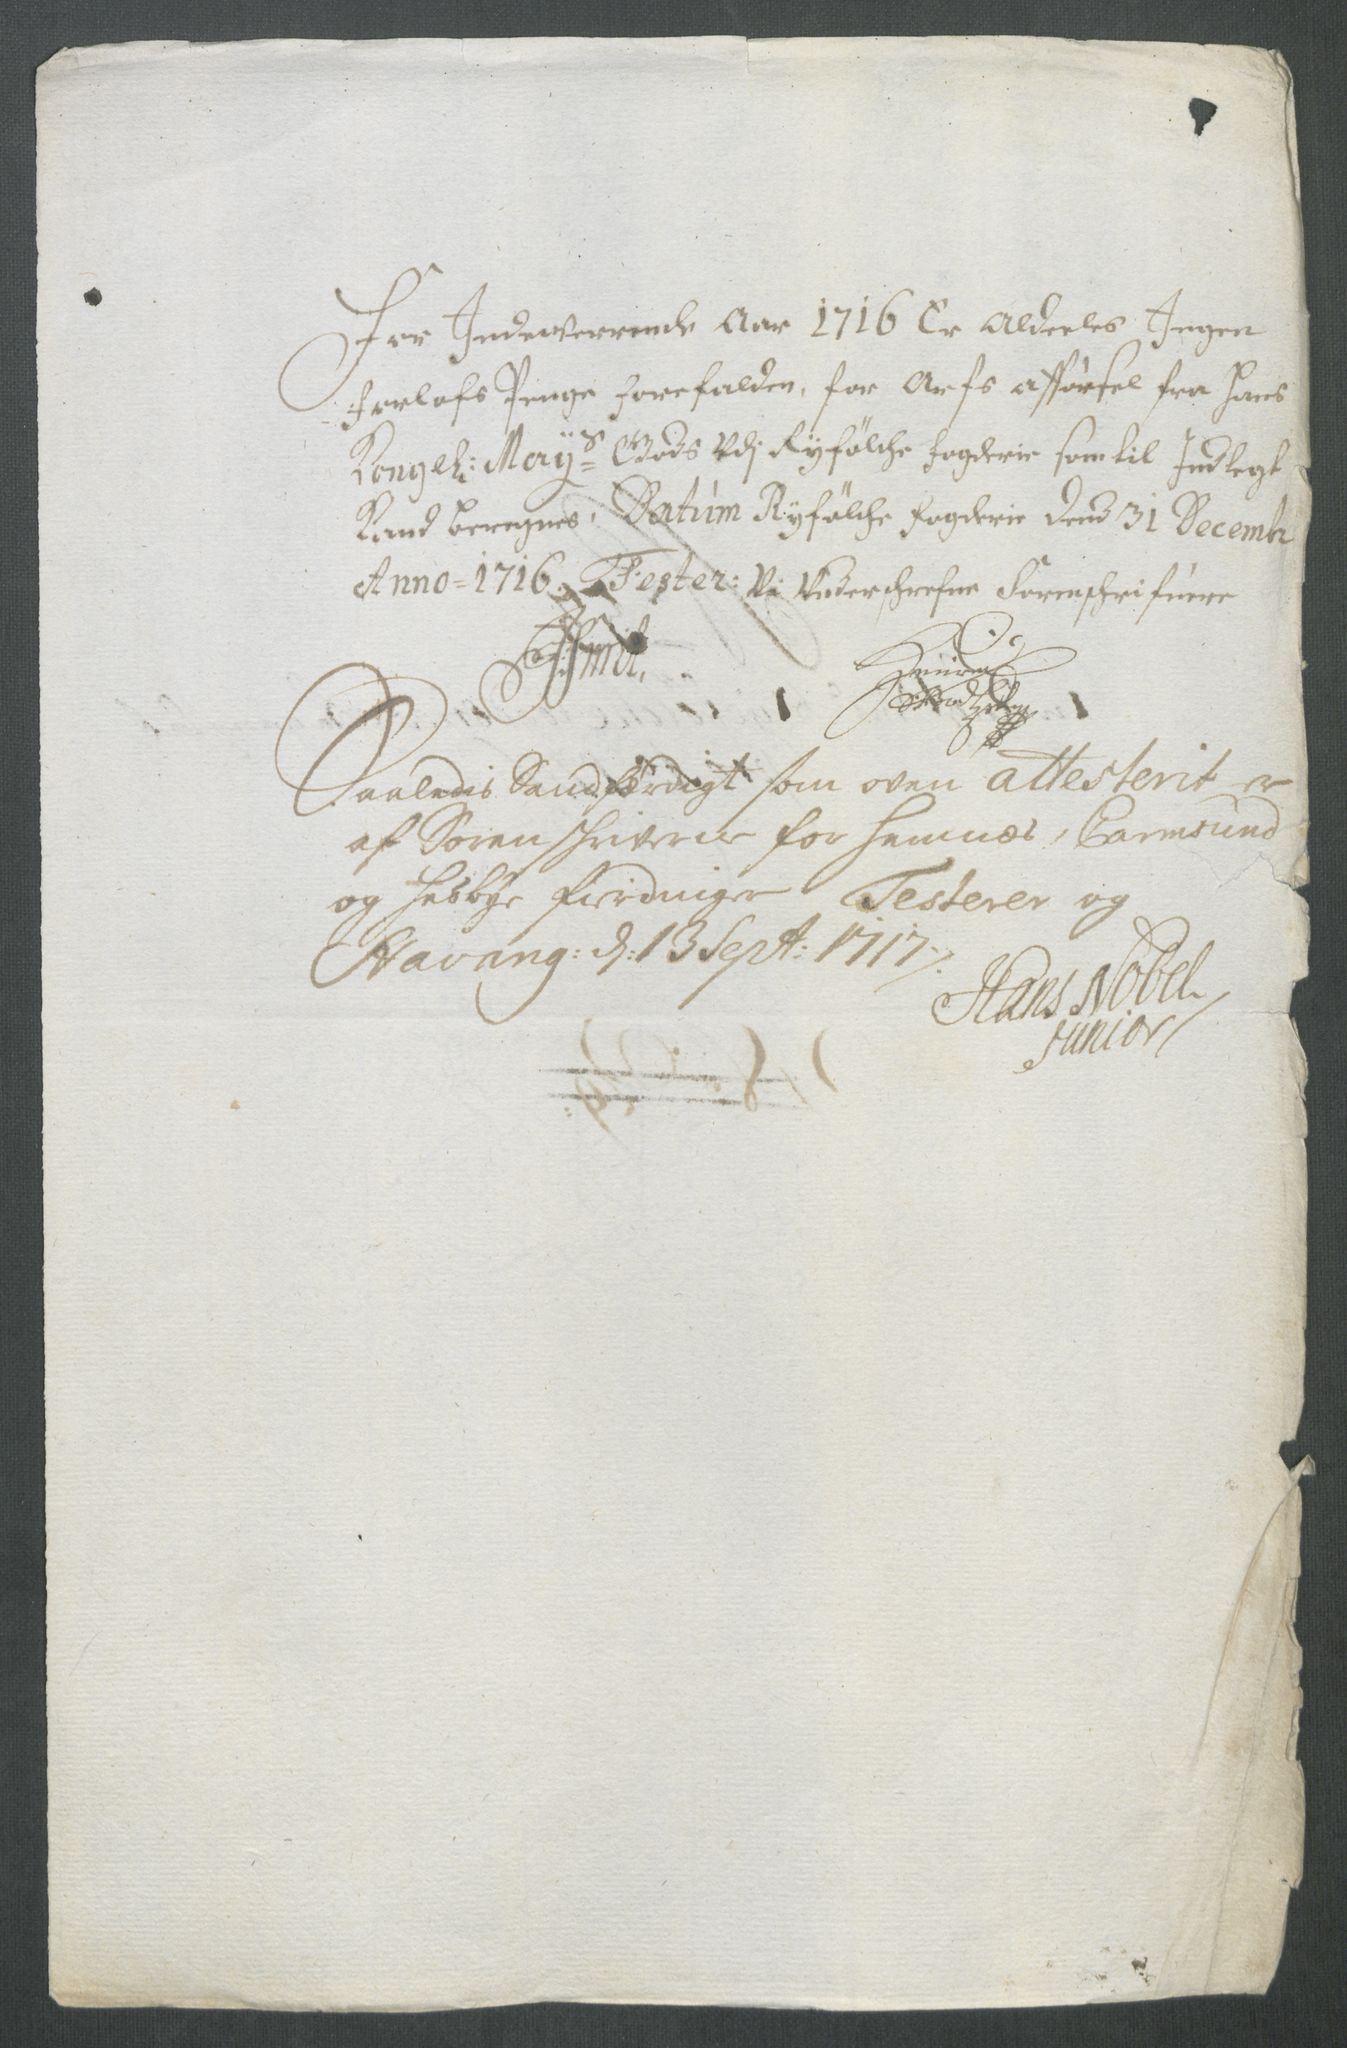 For Indeverrende Aar 1716 Er Aldeeles Ingen
Forlofs Penge forefalden, for Arfs afförsel fra Hans
Kongel: Mayts Gods Udj Ryfölche fogderie som til Indtegt
Kand beregnes, Datum Ryfölche fogderie Dend 31 Decembr
Anno = 1716. Tester: Vi Underschrefne Sorenschrifuere
Smidt,
Saaledis Sandfærdigt som oven attesterit er
af Sorenschriverne for Hemnæs, Carmsund
og Hesbye fierdinger Testerer og
Stavang: d: 13 Sept: 1717.
Hans Nobel
Junior